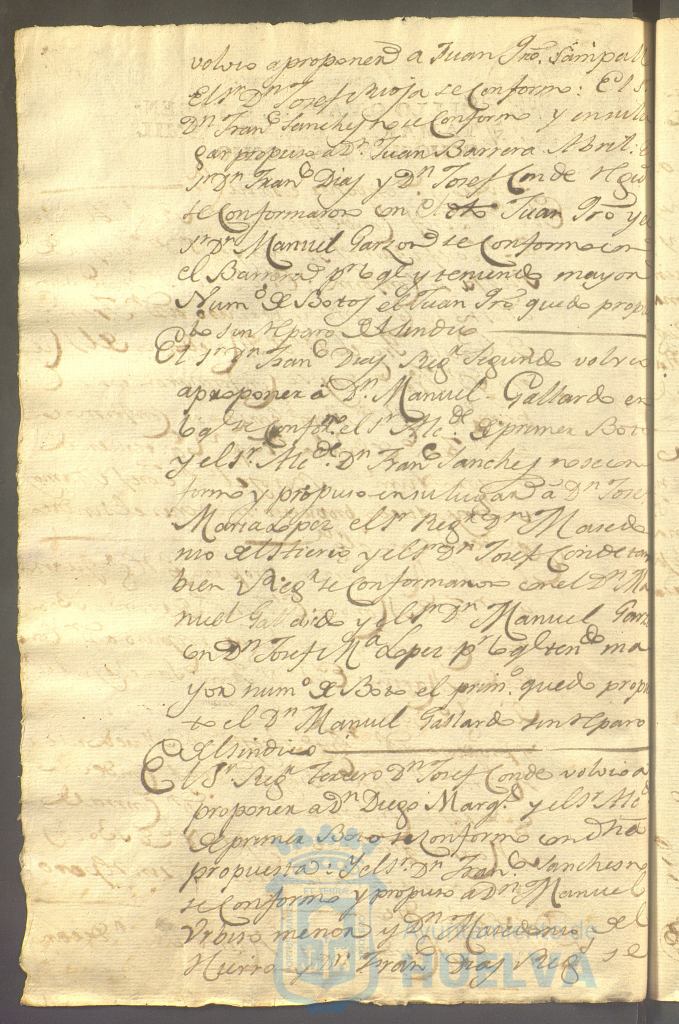 volvio aproponer a Juan Pro. Sampal
El Sr Dn Josef Rioja se Conformo: El S.
Dn Franco Sanches no se Conformo y en su lu
gar propuso a Dn. Juan Barrera Abril: 
Sr Dn Franco Dias y Dn Josef Conde Regid
se Conformaron con el dho Juan Pro y el
Sr Dn Manuel Garzon se Conformo con
el Barrera pr lo ql y teniendo mayor
Numo. de Botos el Juan Pro quedo propu
to sin reparo del Sindico
El Sr Dn Franco Dias Regr Segundo volvio
aproponer a Dn. Manuel Gallardo en
lo ql se Conformo el Sr Alcde de primer Boto
y el Sr. Alcde Dn Franco Sanches no se con
formo y propuso en su lugar a Dn Josef
Maria Lopez el Sr Regr Dn Masedo
nio del Hierro y el Sr Dn Josef Conde tam
bien Regr se Conformaron con el Dn Ma
nuel Gallardo y el Sr Dn Manuel Garz
on Dn Josef Ma Lopez pr lo ql tendo ma
yor numo de Boto el primo. quedo propu
to el Dn Manuel Gallardo sin reparo
del Sindico
El Sr Regr Tercero Dn Josef Conde volvio a
proponer a Dn Diego Marqz y el Sr Alce
de primer Boto se Conformo con dha
propuesta: Y el Sr. Dn Franco Sanches no
se Conformo y propuso a Dn Manuel
menor y Dn Masedonio del
Hierro y Dn Franco Dias Regs se
Ayuntamiento de
HUELVA